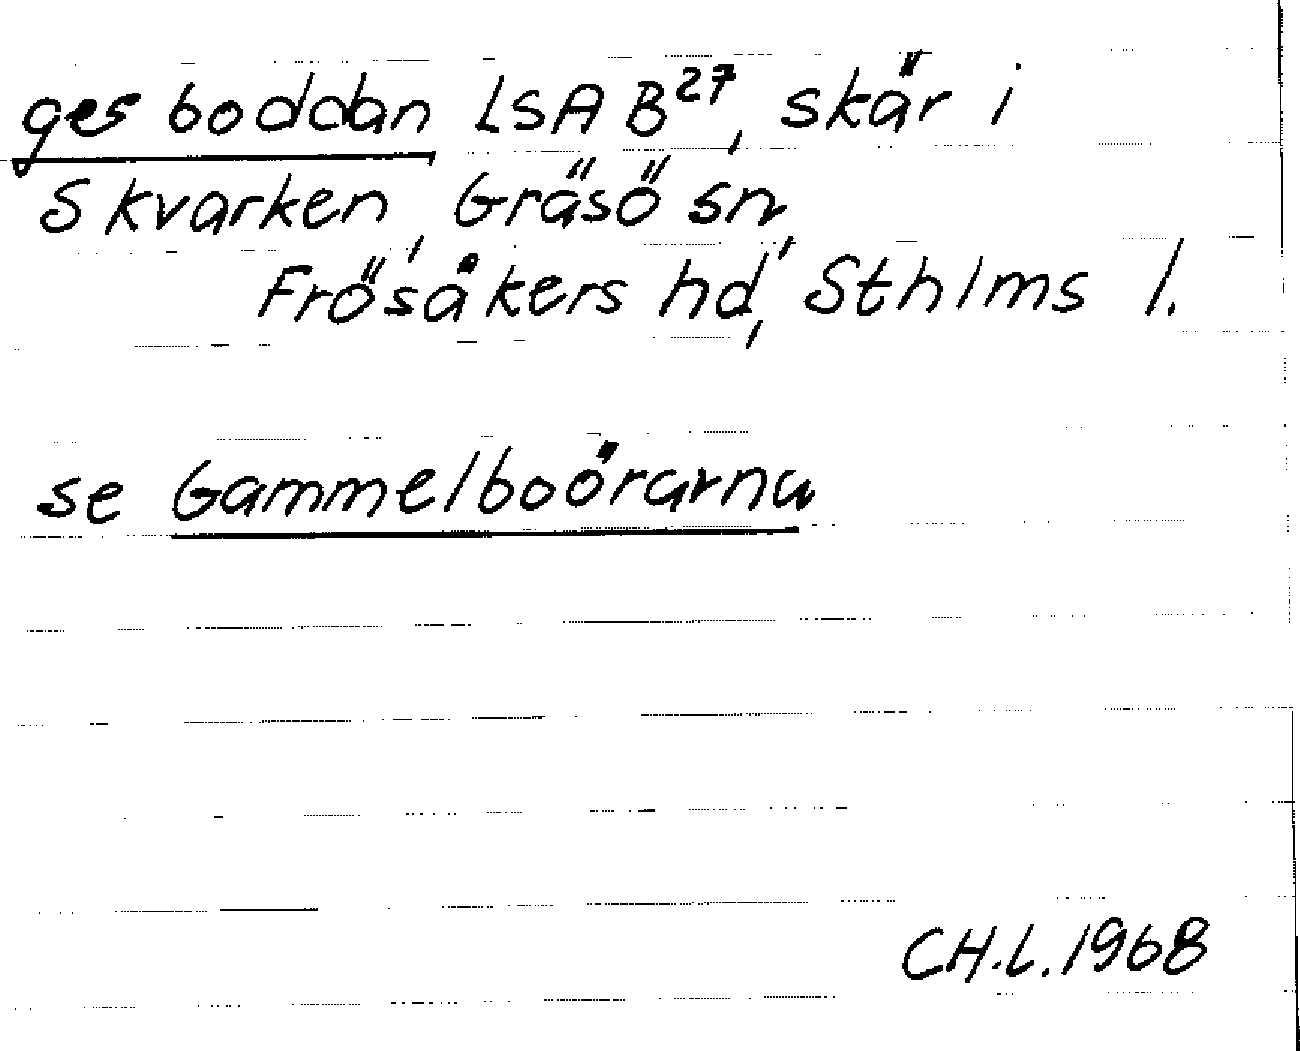 ges boddan LSA B27, skär i
Skvarken, Gräsö sn,
Frösåkers hd, Sthlms l.
se Gammelboörarna
CH.L. 1968